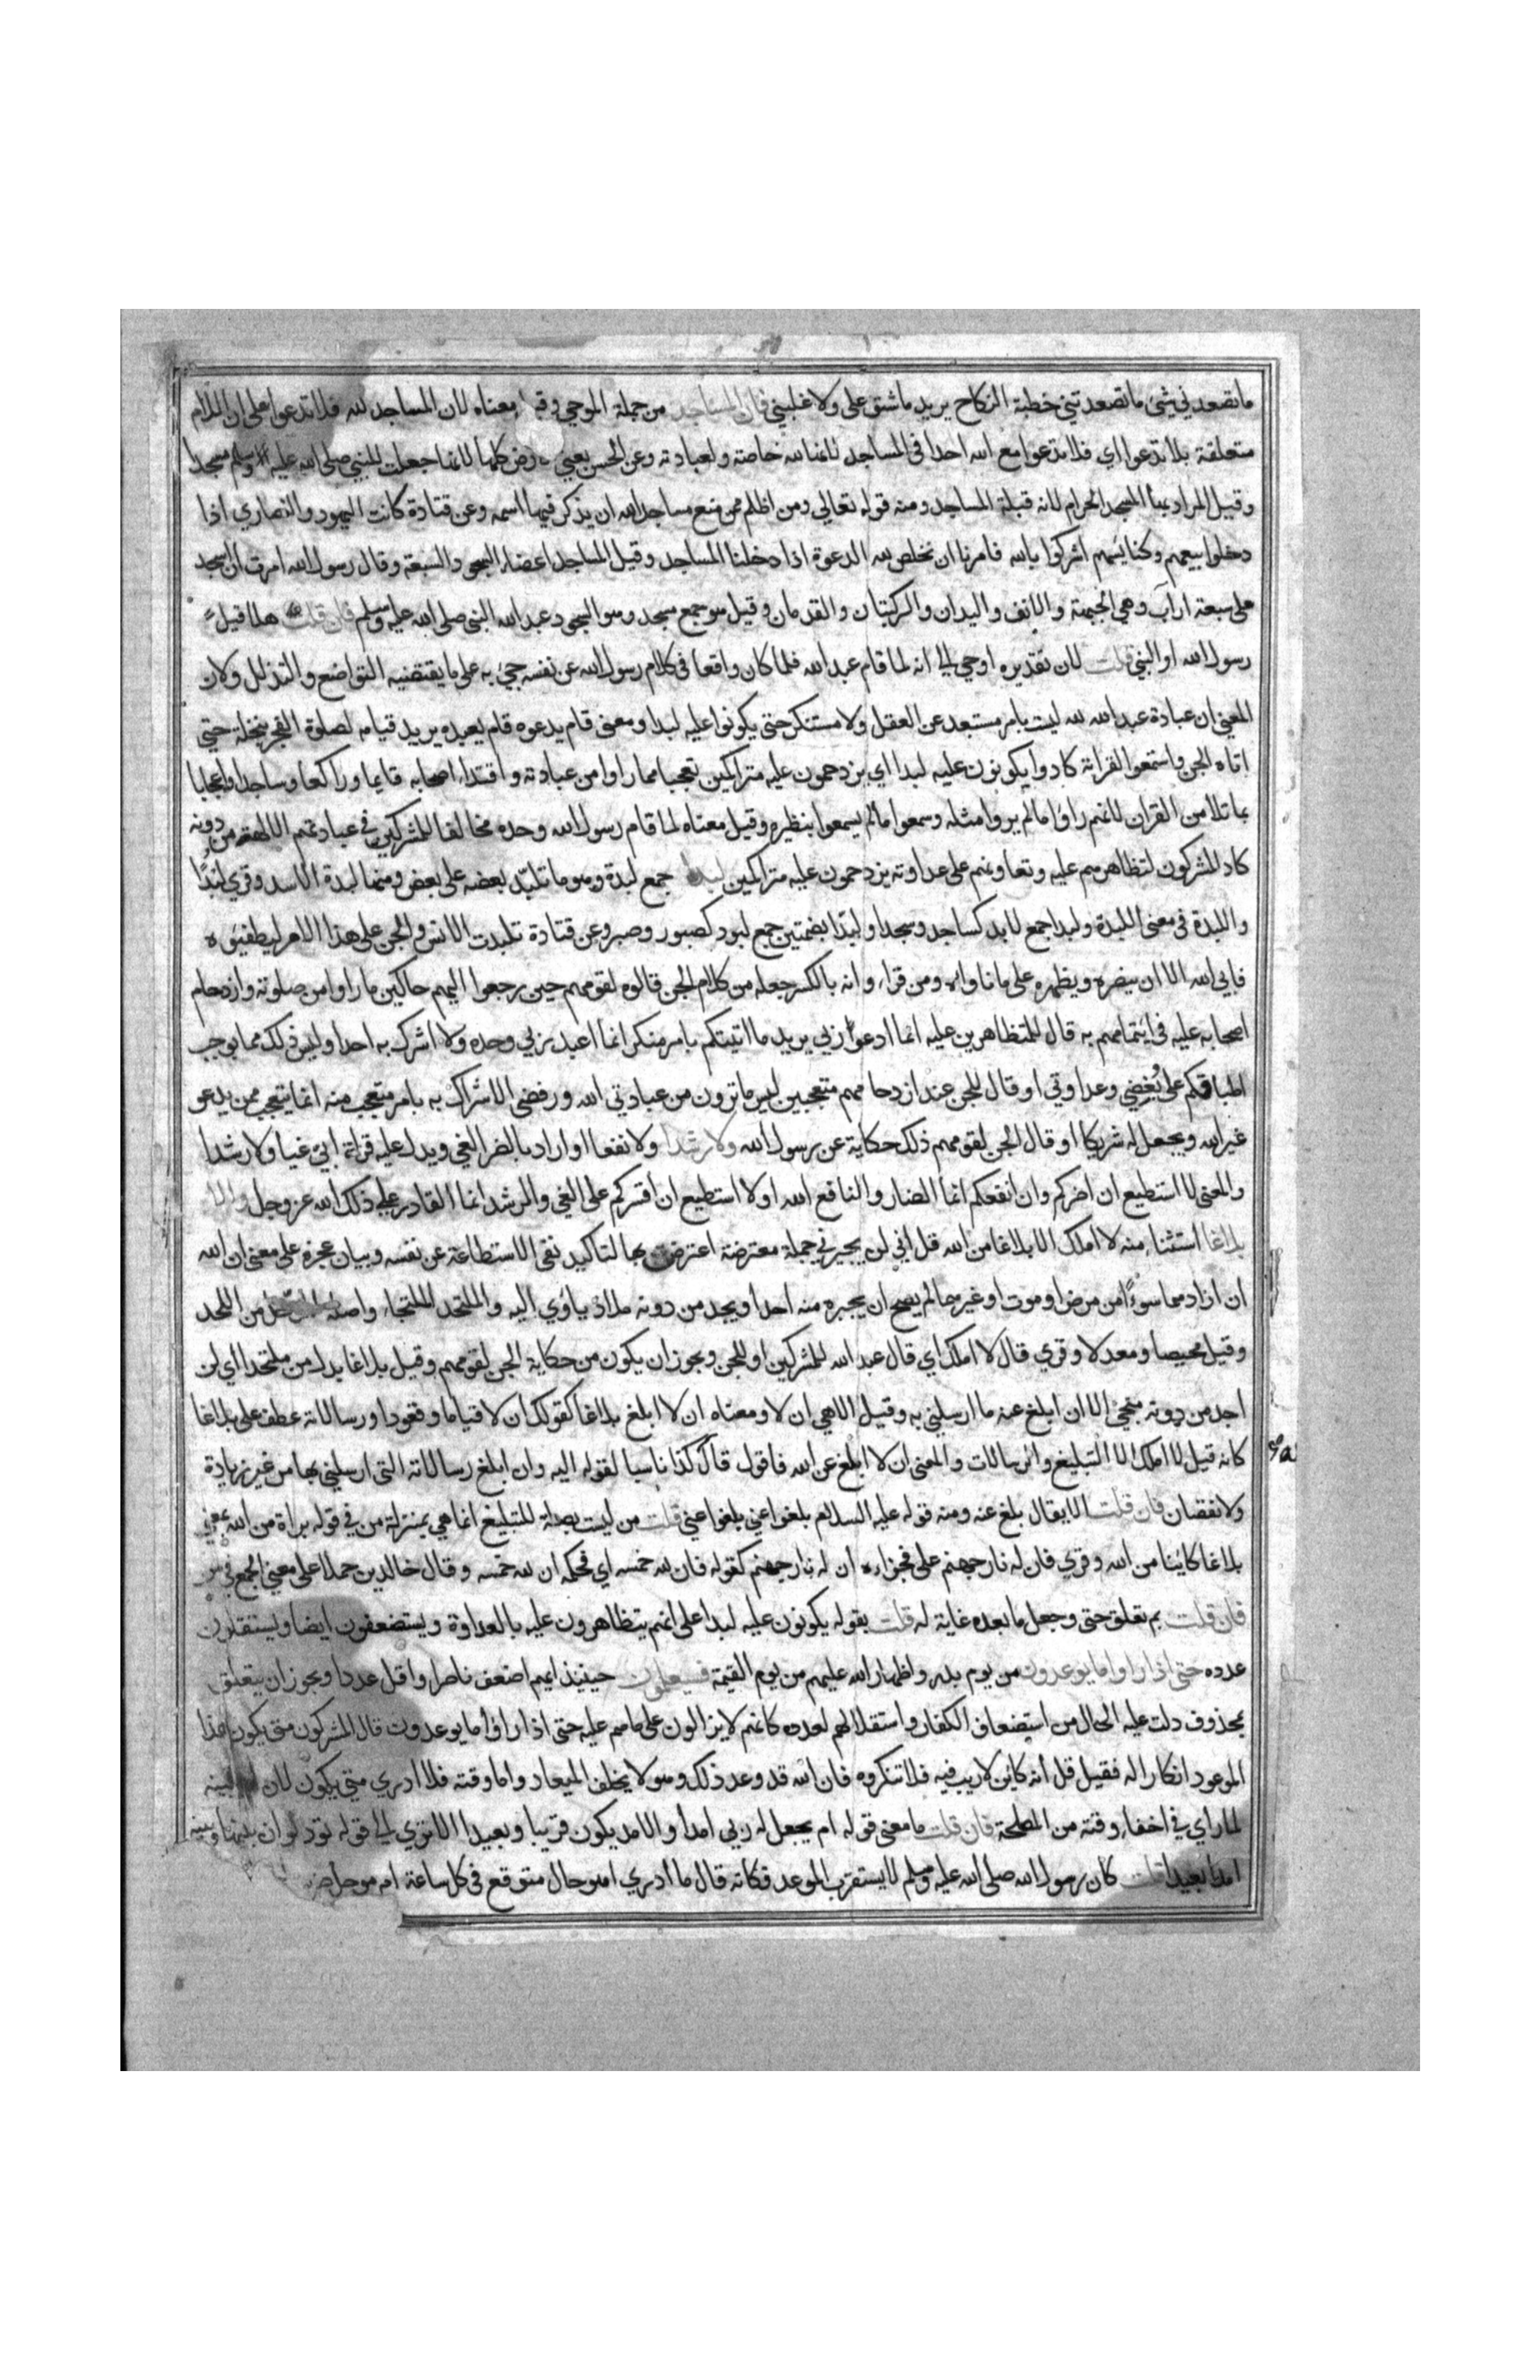 ما تصعدني شئ ما تصعدتني خطبة النكاح يريد ما شق على ولا غلبني فان المساجد من جملة الموحي وقيل معناه لان المساجد لله فلا تدعوا على ان اللام
متعلقة بلا تدعوا اي فلا تدعوا مع الله احدا في المساجد لانها لله خاصة ولعبادته وعن الحسن يعني الارض كلها لانها جعلت للنبي صلى الله عليه وسلم مسجدا
وقيل المراد بها المسجد الحرام لانه قبلة المساجد ومنه قوله تعالي ومن اظلم ممن منع مساجد الله ان يذكر فيها اسمه وعن قتادة كانت اليهود والنصاري اذا
دخلوا بيعهم وكنائسهم اشركوا بالله فامرنا ان نخلص لله الدعوة اذا دخلنا المساجد وقيل المساجد اعضاء السجود السبعة وقال رسول الله امرت ان اسجد
على سبعة اراب وهي الجبهة والانف واليدان والركبتان والقدمان وقيل هو جمع مسجد وهو السجود عبد الله النبي صلى الله عليه وسلم فان قلت هلا قيل
رسول الله او النبي قلت لان تقديره اوحي الي انه لما قام عبد الله فلما كان واقعا في كلام رسول الله عن نفسه جئ به على ما يقتضيه التواضع والتذلل ولان
المعني ان عبادة عبد الله لله ليست بامر مستبعد عن العقل ولا مستنكر حتى يكونوا عليه لبدا ومعنى قام يدعوه قام يعبده يريد قيامه لصلوة الفجر بنخلة حتي
اتاه الجن واستمعوا القراته كادوا يكونون عليه لبدا اي يزدحمون عليه متراكمين تعجبا مما راوا من عبادته واقتداء اصحابه قايما وراكعا وساجدا واعجابا
بما تلا من القران لانهم راوا ما لم يروا مثله وسمعوا ما لم يسمعوا بنظيره وقيل معناه لما قام رسول الله وحده مخالفا للمشركين في عبادتهم الالهة من دونه
كاد المشركون لتظاهرهم عليه وتعاونهم على عداوته يزدحمون عليه متراكمين لبدا جمع لبدة وهو ما تلبّد بعضه على بعض ومنها لبدة الاسد وقري لُبَدًا
واللبدة في معنى اللبدة ولبدا جمع لابد كساجد وسجد ولبدا بضمتين جمع لبود كصبور وصبر وعن قتادة تلبدت الانس والجن على هذا الامر ليطفئوه
فابي الله الا ان ينصره ويظهره على ما ناواه ومن قراء وانه بالكسر جعله من كلام الجن قالوه لقومهم حين رجعوا اليهم حاكين ما راوا من صلوته وازدحام
اصحابه عليه في ائتمامهم به قال للمتظاهرين عليه انما ادعوا ربي يريد ما اتيتكم بامر منكر انما اعبد ربي وحده ولا اشرك به احدا وليس ذلك مما يوجب
اطباقكم على بُغضي وعداوتي او قال للجن عند ازدحامهم متعجبين ليس ما ترون من عبادتي الله ورفضي الاشراك به بامر متعجب منه انما يتعجب ممن يدعو
غير الله ويجعل له شريكا او قال الجن لقومهم ذلك حكاية عن رسول الله ولا رشدا ولا نفعا او اراد بالضر الغي ويدل عليه قراة ابيّ غيا ولا رشدا
والمعنى لا استطيع ان اضركم وان انفعكم انما الضار والنافع الله او لا استطيع ان اقسركم على الغي والرشد انما القادر علي ذلك الله عز وجل والا
بلاغا استثناء منه لا املك الا بلاغا من الله قل اني لن يجيرني جملة معترضة اعترضت بها لتاكيد نفي الاستطاعة عن نفسه وبيان عجزه على معنى ان الله
ان اراد مما سوءًا من مرض او موت او غيرها لم يصح ان يجيره منه احد او يجد من دونه ملاذ ياوي اليه والملتحد الملتجاء واصله المدّخل من اللحد
وقيل محيصا ومعدلا وقري قال لا املك اي قال عبد الله للمشركين او للجن ويجوز ان يكون من حكاية الجن لقومهم وقيل بلاغا بدل من ملتحدا اي لن
اجد من دونه منجي الا ان ابلغ عنه ما ارسلني به وقيل الاهي ان لا ومعناه ان لا ابلغ بلاغا كقولك ان لا قياما وقعودا ورسالاته عطف على بلاغا
كانه قيل لا املك الا التبليغ والرسالات والمعنى ان لا ابلغ عن الله فاقول قال كذا ناسبا لقوله اليه وان ابلغ رسالاته التي ارسلني بها من غير زيادة
ولا نقصان فان قلت الا يقال بلغ عنه ومنه قوله عليه السلام بلغوا عني بلغوا عني قلت من ليست بصلة للتبليغ انما هي بمنزلة من في قوله براة من الله بمعني
بلاغا كائنا من الله وقري فان له نار جهنم على فجزاءه ان له نار جهنم كقوله فان لله خمسه اي فحكمه ان لله خمسه وقال خالدين حملا على معني الجمع في من
فان قلت بم تعلق حتى وجعل ما بعده غاية له قلت بقوله يكونون عليه لبدا على انهم يتظاهرون عليه بالعداوة ويستضعفون ايضا ويستقلون
عدده حتى اذا راوا ما يوعدون من يوم بدر واظهار الله عليهم من يوم القيمة فسيعلمون حينيذ ايهم اضعف ناصرا واقل عددا ويجوز ان يتعلق
بمحذوف دلت عليه الحال من استضعاف الكفار واستقلالهم لعدده كانهم لا يزالون على ما هم عليه حتى اذا راوا ما يوعدون قال المشركون متى يكون هذا
الموعود انكارا له فقيل قل انه كائن لا ريب فيه فلا تنكروه فان الله قد وعد ذلك وهو لا يخلف الميعاد واما وقته فلا ادري متي يكون لان الله لم يبينه
لما راي في اخفاء وقته من المصلحة فان قلت ما معنى قوله ام يجعل له ربي امدا والامد يكون قريبا وبعيدا الا تري الي قوله تود لو ان بينها وبينه
امدا بعيدا قلت كان رسول الله صلى الله عليه وسلم لا يستقرب الموعد فكانه قال ما ادري اهو حال متوقع في كل ساعة ام موجل